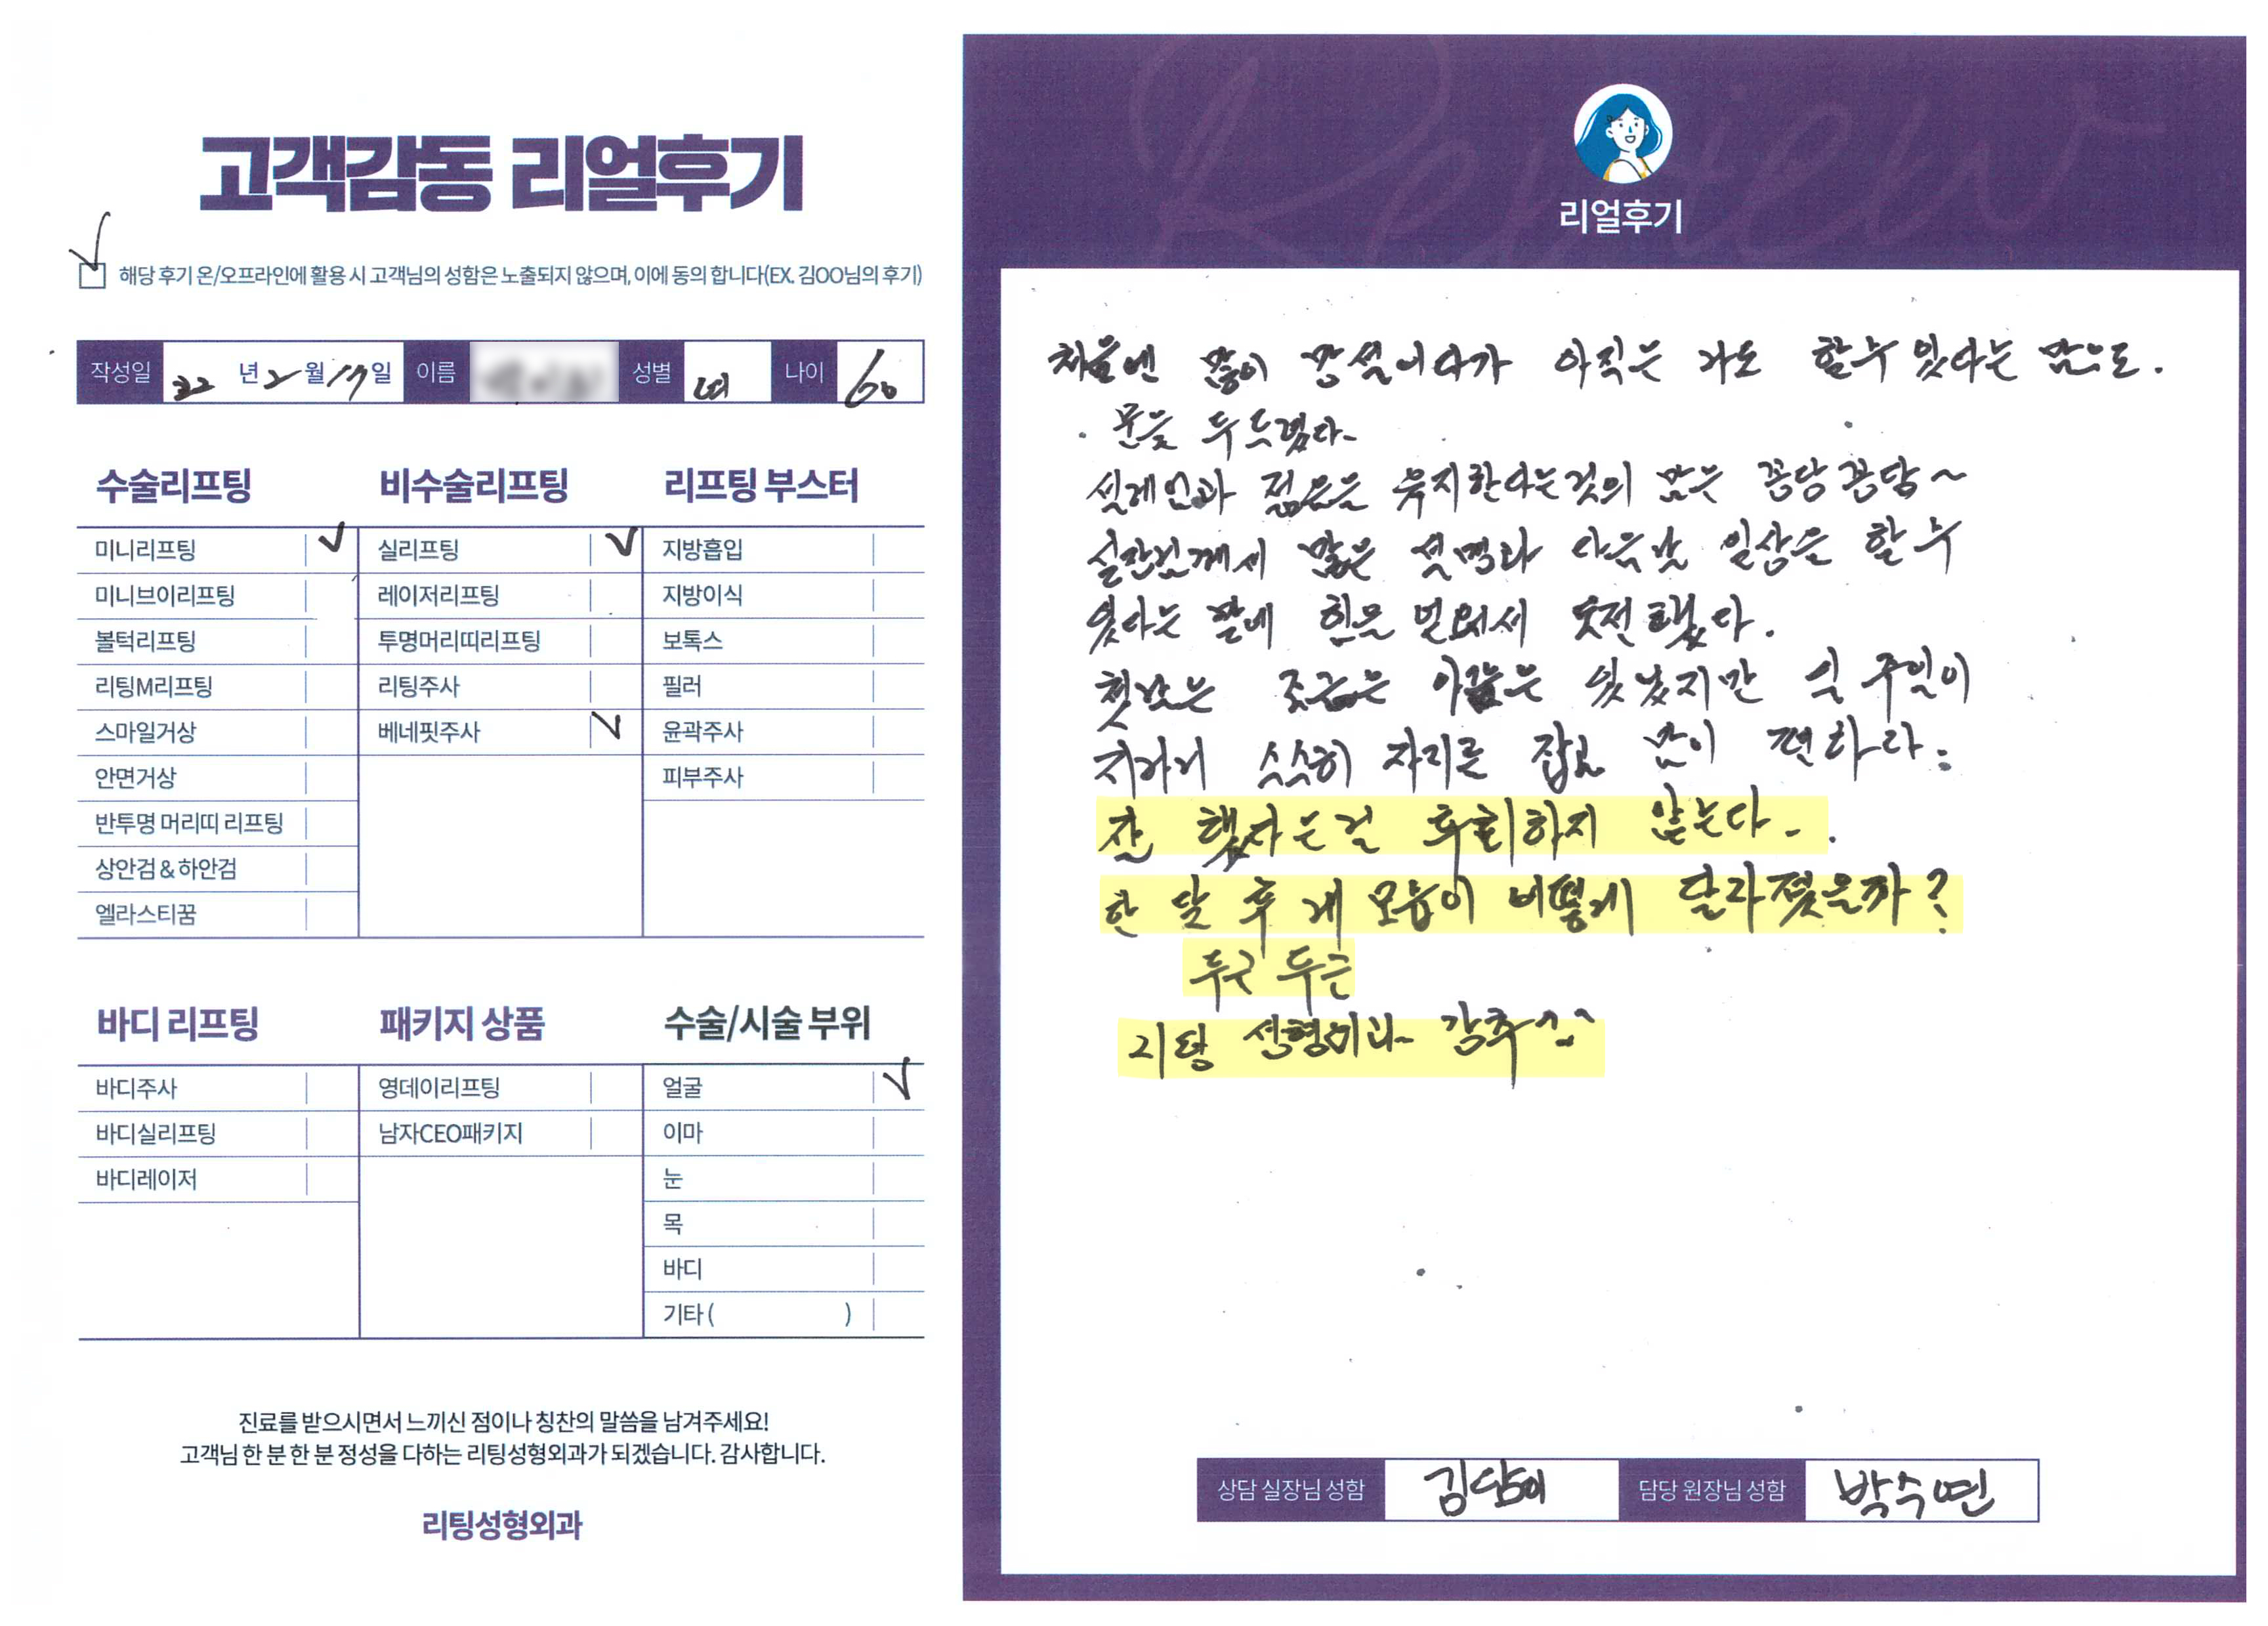 고객감동 리얼후기
해당 후기 온/오프라인에 활용 시 고객님의 성함은 노출되지 않으며, 이에 동의 합니다(EX. 김OO님의 후기)
작성일 22 년 2 월 17 일 이름 성별 여 나이 60
수술리프팅
미니리프팅
미니브이리프팅
볼턱리프팅
리팅M리프팅
스마일거상
안면거상
반투명 머리띠 리프팅
상안검 & 하안검
엘라스티꿈
비수술리프팅
실리프팅
레이저리프팅
투명머리띠리프팅
리팅주사
베네핏주사
리프팅 부스터
지방흡입
지방이식
보톡스
필러
윤곽주사
피부주사
바디 리프팅
바디주사
바디실리프팅
바디레이저
패키지 상품
영데이리프팅
남자CEO패키지
수술/시술 부위
얼굴
이마
눈
목
바디
기타 ( )
진료를 받으시면서 느끼신 점이나 칭찬의 말씀을 남겨주세요!
고객님 한 분 한 분 정성을 다하는 리팅성형외과가 되겠습니다. 감사합니다.
리팅성형외과
Review
리얼후기
처음엔 많이 망설이다가 아직은 나도 할수 있다는 맘으로.
문을 두드렸다.
설레임과 젊음을 유지한다는것의 맘은 콩당콩당~
실장님께서 많은 설명과 다음날 일상을 할 수
있다는 말에 힘을 얻어서 도전했다.
첫날은 조금은 아픔은 있었지만 일 주일이
지나니 스스히 자리를 잡고 맘이 편하라:
잘 했다는걸 후회하지 않는다..
한 달 후 내 모습이 어떻게 달라졌을까?
두근 두근
리팅 성형이다 강추^^
상담 실장님 성함 김담이 담당 원장님 성함 박수연